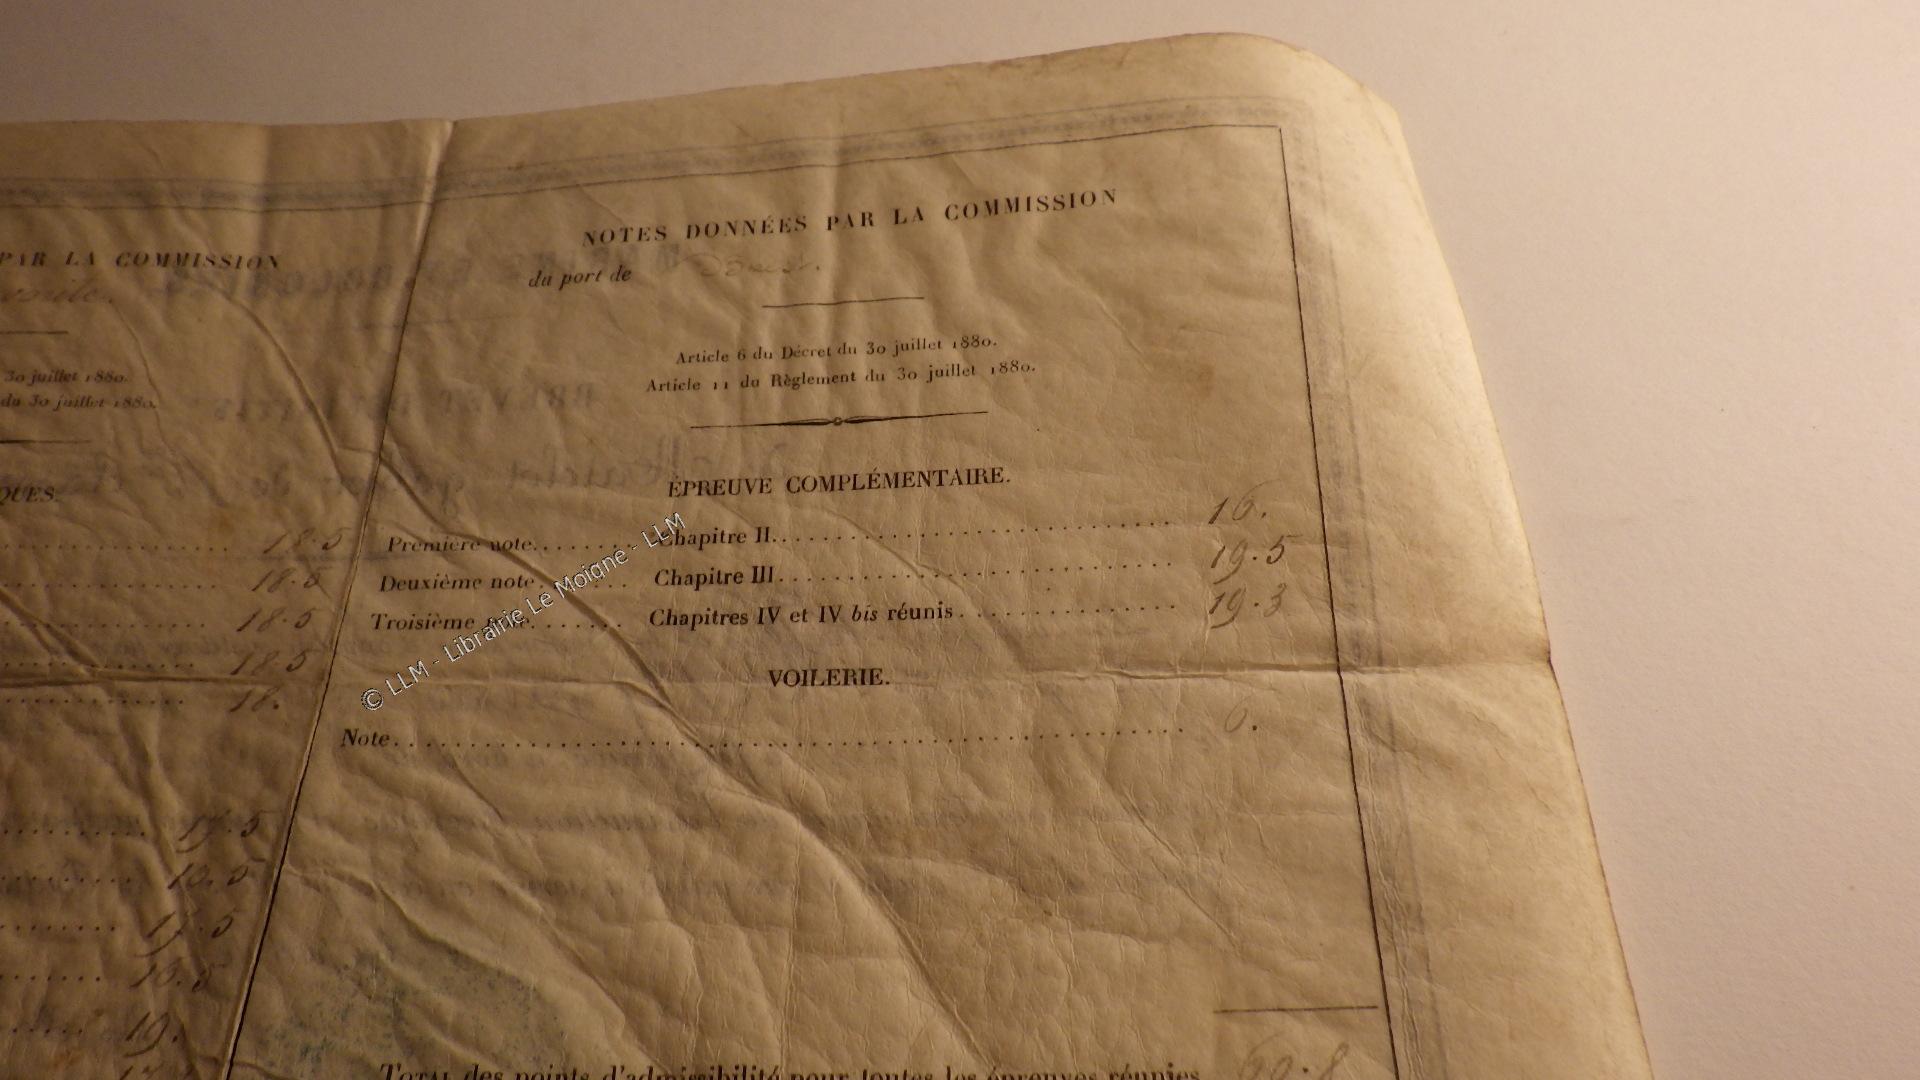 PAR LA COMMISSION
30 juillet 1880.
du 30 juillet 1880.
QUES.
18.5
18.5
18.5
18.5
18.
17.5
17.5
19.
NOTES DONNÉES PAR LA COMMISSION
du port de
Article 6 du Décret du 30 juillet 1880.
Article 11 du Règlement du 30 juillet 1880.
ÉPREUVE COMPLÉMENTAIRE.
Première note........ Chapitre II. 16.
Deuxième note........ Chapitre III. 19.5
Troisième note........ Chapitres IV et IV bis réunis. 19.3
VOILERIE.
Note. 6.
TOTAL des points d'admissibilité pour toutes les épreuves réunies 60.8
© LLM - Librairie Le Moigne - LLM